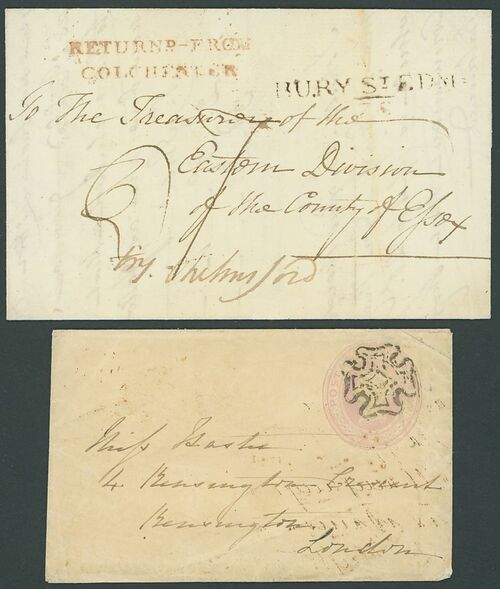 RETURND-FROM
COLCHESTER
BURY ST EDM
To The Treasurer of the
Eastern Division
of the County of Essex
6
try Chelmsford
POST
Miss
4 Kensington Crescent
Kensington
London